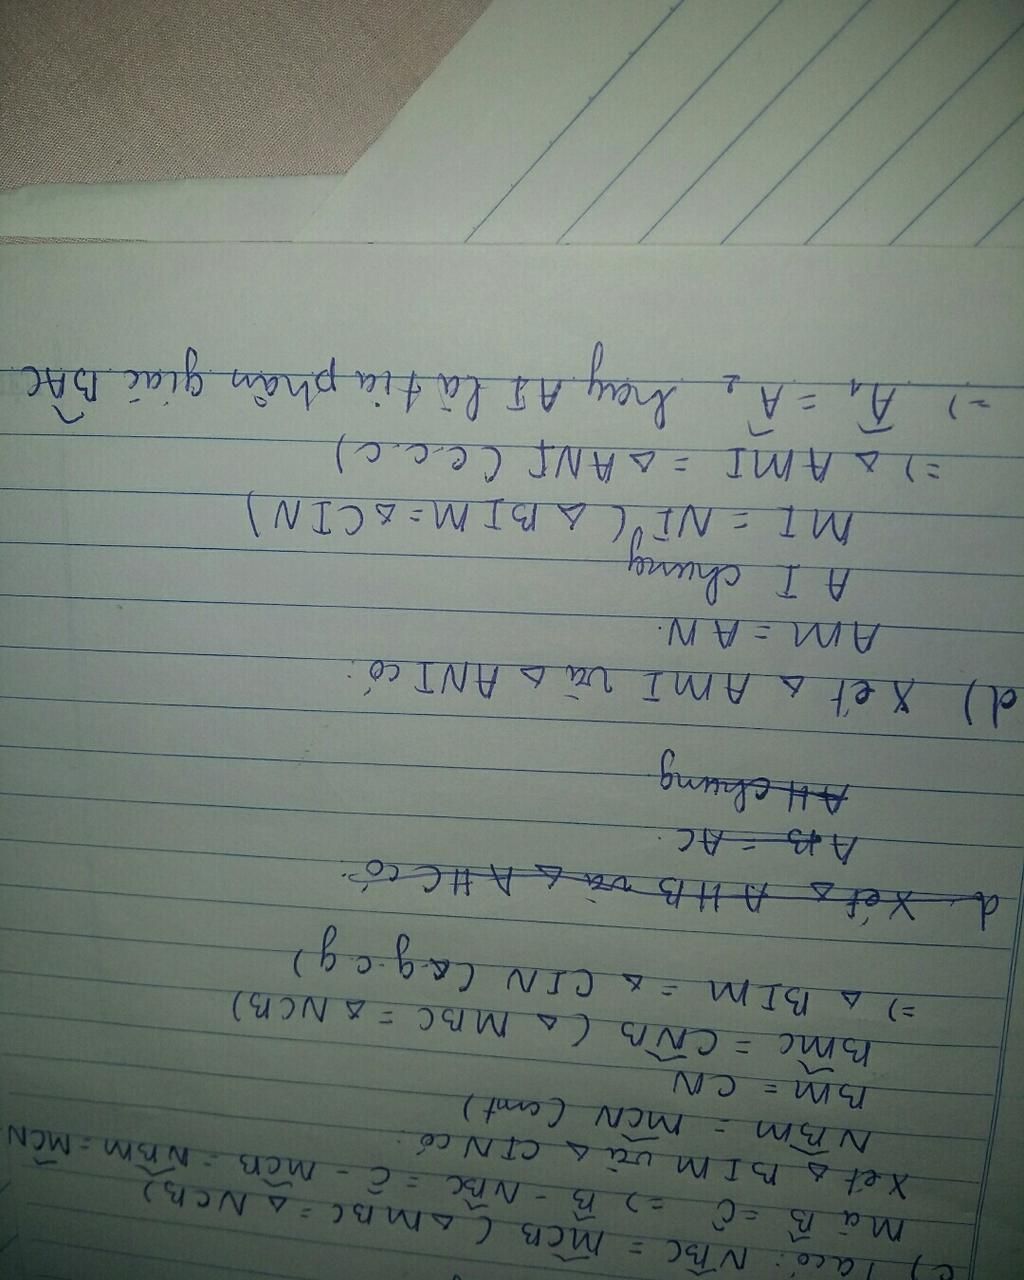 c) Ta có: N̂BC = M̂CB (∆MBC = ∆NCB)
Mà B̂ = Ĉ => B̂ - N̂BC = Ĉ - M̂CB = N̂BM = M̂CN
Xét ∆ BIM và ∆ CIN có:
N̂BM = M̂CN (cmt)
BM = CN
B̂MC = ĈNB (∆ MBC = ∆ NCB)
=> ∆ BIM = ∆ CIN (g.c.g)
d. Xét ∆ AHB và ∆ AHC có:
AB = AC.
AH chung
d) Xét ∆ AMI và ∆ ANI có:
AM = AN.
AI chung
MI = NI (∆ BIM = ∆ CIN)
=> ∆ AMI = ∆ ANI (c.c.c)
=> Â₁ = Â₂ hay AI là tia phân giác B̂AC